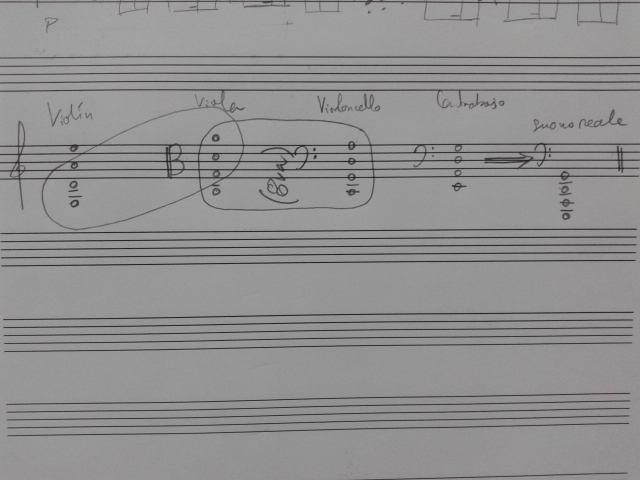 P
Violín Viola Violoncello Contrabasso suono reale
(8va)